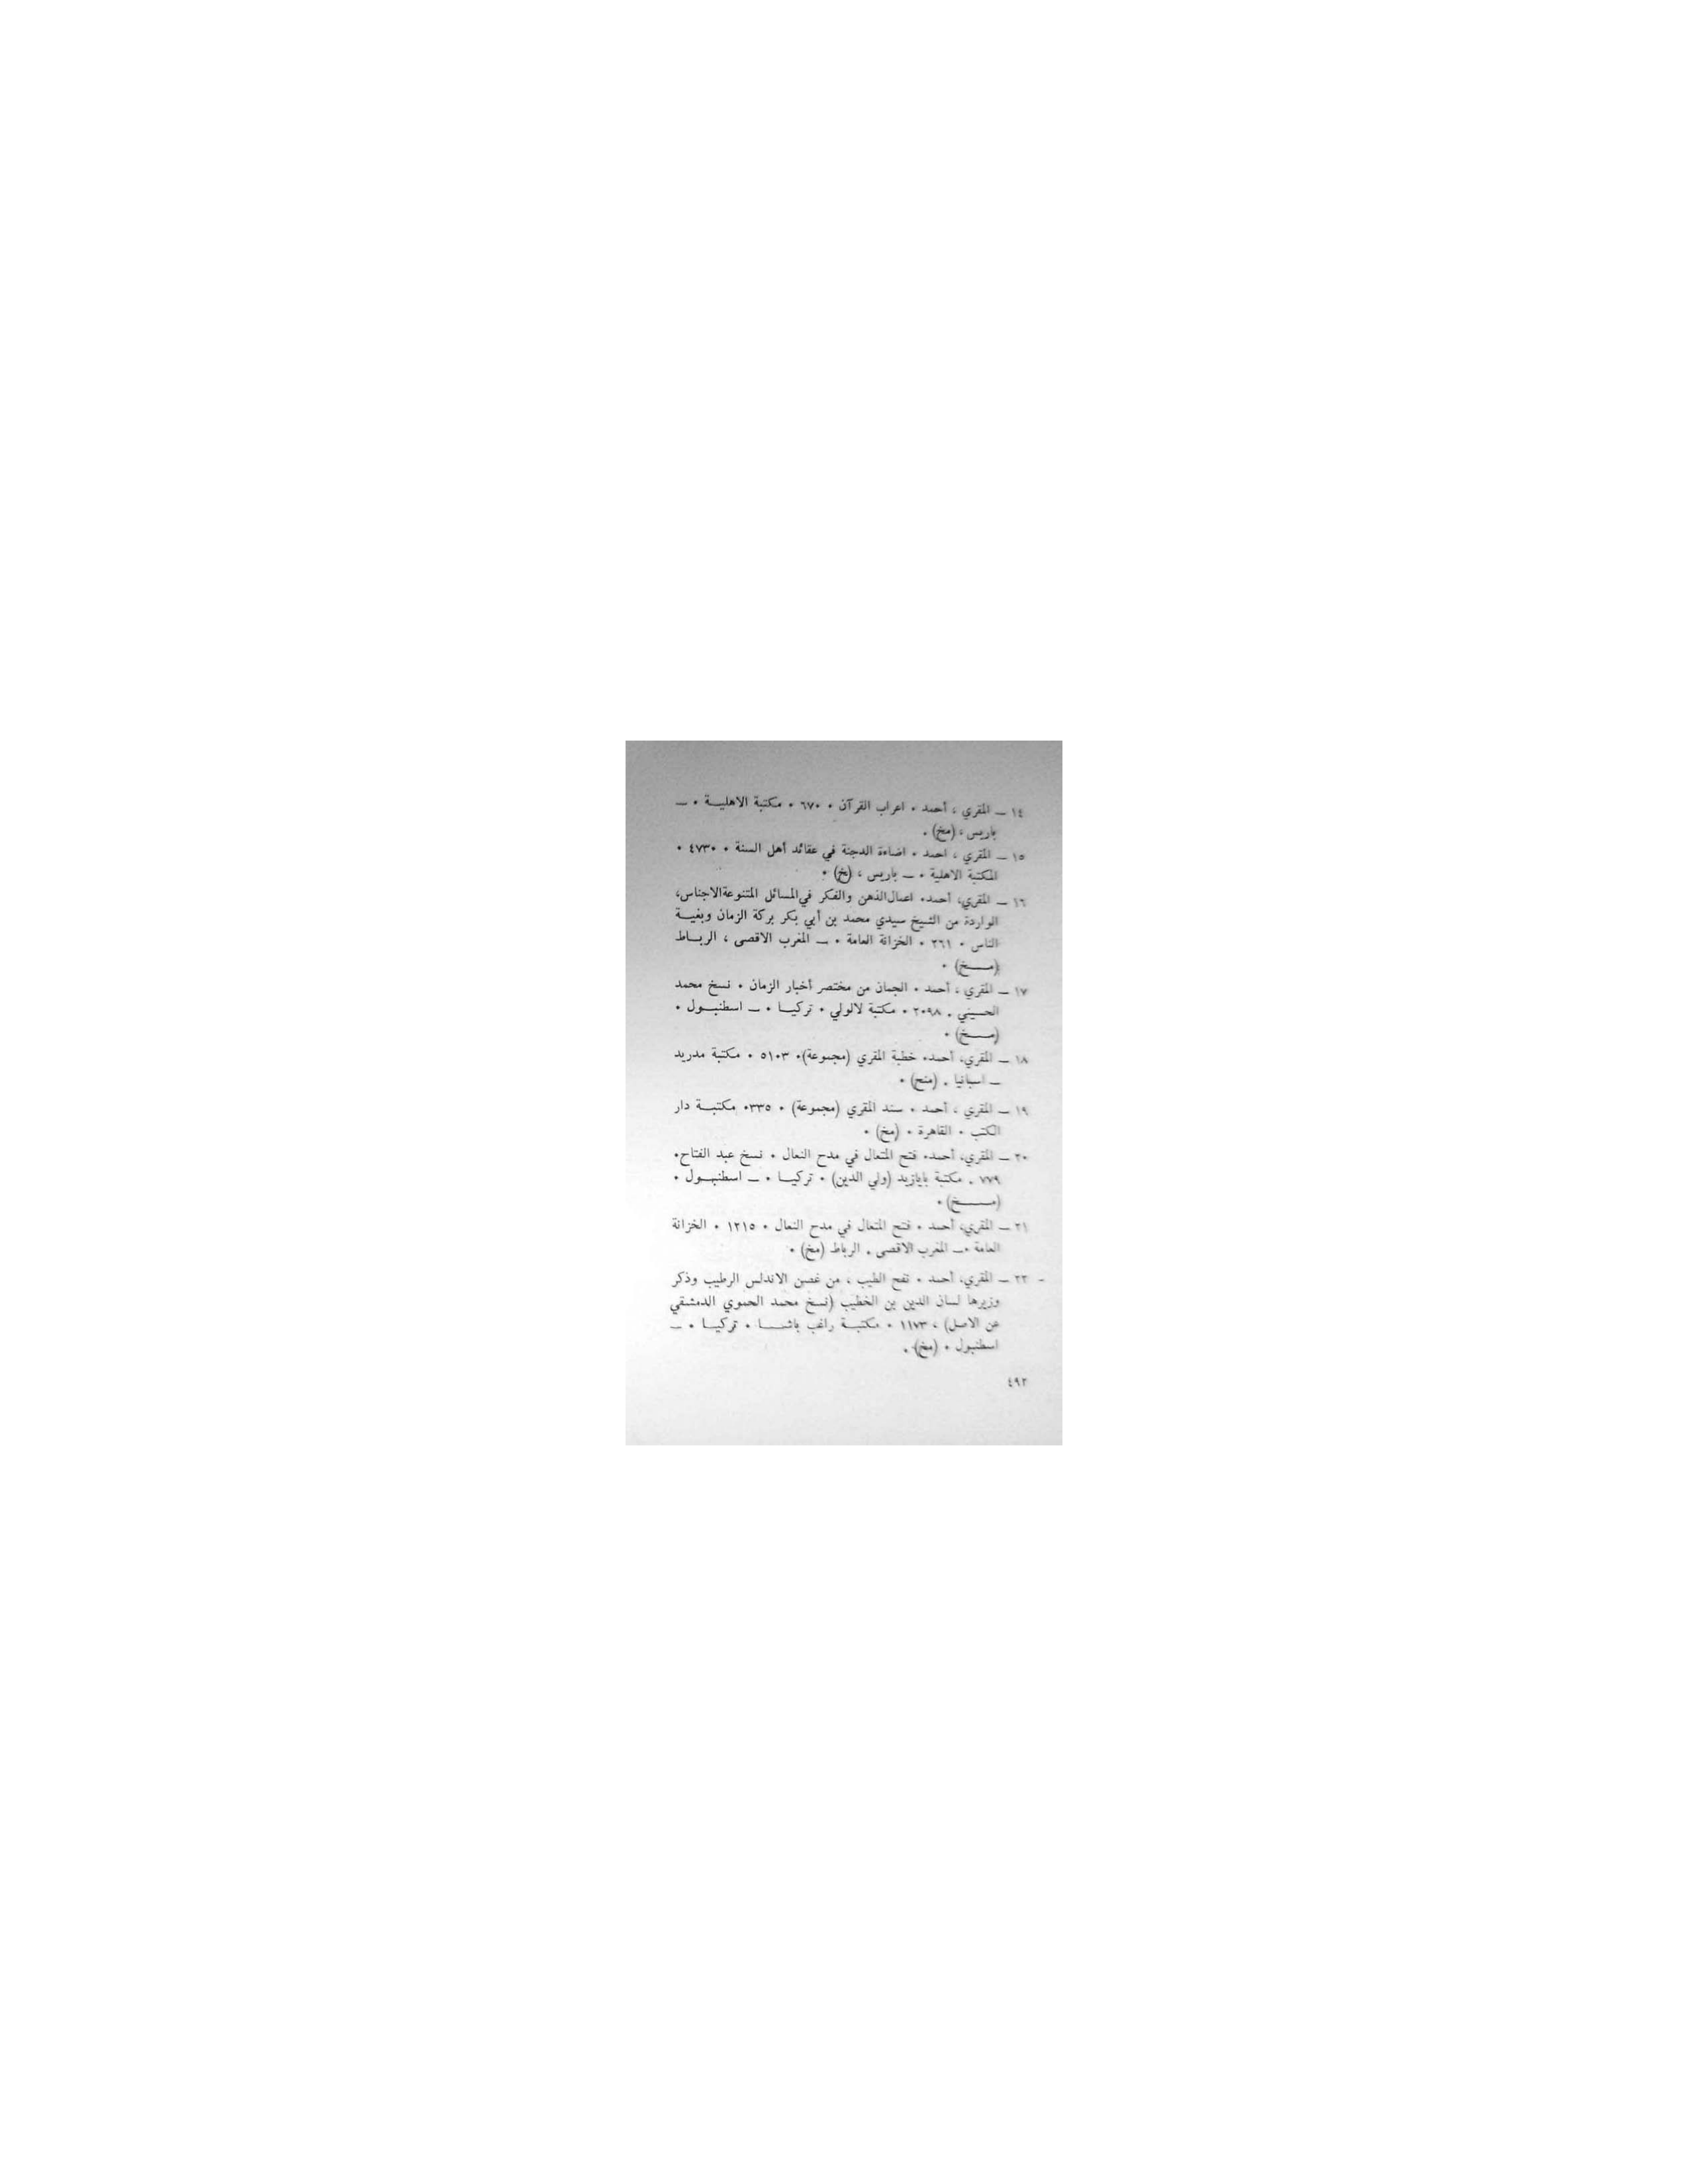 ١٤ — المقري ، أحمد ٠ اعراب القرآن ٠ ٦٧٠ ٠ مكتبة الاهليــة ٠ —
باريس ، (مخ) .
١٥ — المقري ، احمد ٠ اضاءة الدجنة في عقائد أهل السنة ٠ ٤٧٣٠ ٠
المكتبة الاهلية ٠ — باريس ، (خ) ٠
١٦ — المقري، أحمد٠ اعمال الذهن والفكر في المسائل المتنوعة الاجناس،
الواردة من الشيخ سيدي محمد بن أبي بكر بركة الزمان وبغيــة
الناس ٠ ٢٦١ ٠ الخزانة العامة ٠ — المغرب الاقصى ، الربــاط
(مــــخ) ٠
١٧ — المقري ، أحمد ٠ الجمان من مختصر أخبار الزمان ٠ نسخ محمد
الحسيني . ٢٠٩٨ ٠ مكتبة لالولي ٠ تركيــا ٠ — اسطنبــول ٠
(مــــخ) ٠
١٨ — المقري، أحمد٠ خطبة المقري (مجموعة)٠ ٥١٠٣ ٠ مكتبة مدريد
— اسبانيا . (مخ) ٠
١٩ — المقري ، أحمد ٠ سند المقري (مجموعة) ٠ ٣٣٥٠ مكتبــة دار
الكتب ٠ القاهرة ٠ (مخ) ٠
٢٠ — المقري، أحمد٠ فتح المتعال في مدح النعال ٠ نسخ عبد الفتاح٠
٧٧٩ . مكتبة بايازيد (ولي الدين) ٠ تركيــا ٠ — اسطنبــول ٠
(مــــخ) ٠
٢١ — المقري، أحمد ٠ فتح المتعال في مدح النعال ٠ ١٢١٥ ٠ الخزانة
العامة ٠— المغرب الاقصى . الرباط (مخ) ٠
- ٢٢ — المقري، أحمد ٠ نفح الطيب ، من غصن الاندلس الرطيب وذكر
وزيرها لسان الدين بن الخطيب (نسخ محمد الحموي الدمشقي
عن الاصل) ، ١١٧٣ ٠ مكتبــة راغب باشــــا ٠ تركيــا ٠ —
اسطنبول ٠ (مخ) .
٤٩٢